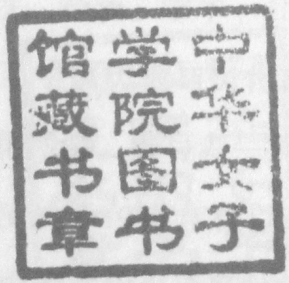 中华女子
学院图书
馆藏书章